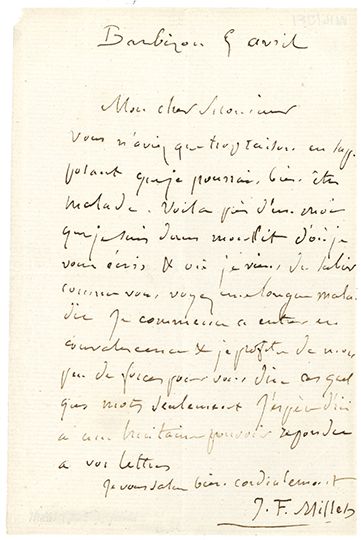 Barbizon 5 avril
Mon cher Monsieur
Vous n'aviez que trop raison en sup
posant que je pourrais bien être
malade. Voilà près d'un mois
que je suis dans mon lit d'où je
vous écris & où je viens de subir
comme vous voyez une longue mala
die. Je commence a entrer en
convalescence & je profite de mon
peu de forces pour vous dire ces quel
ques mots seulement. J'espère d'ici
à une huitaine pouvoir repondre
a vos lettres
Je vous salue bien cordialement
J. F. Millet